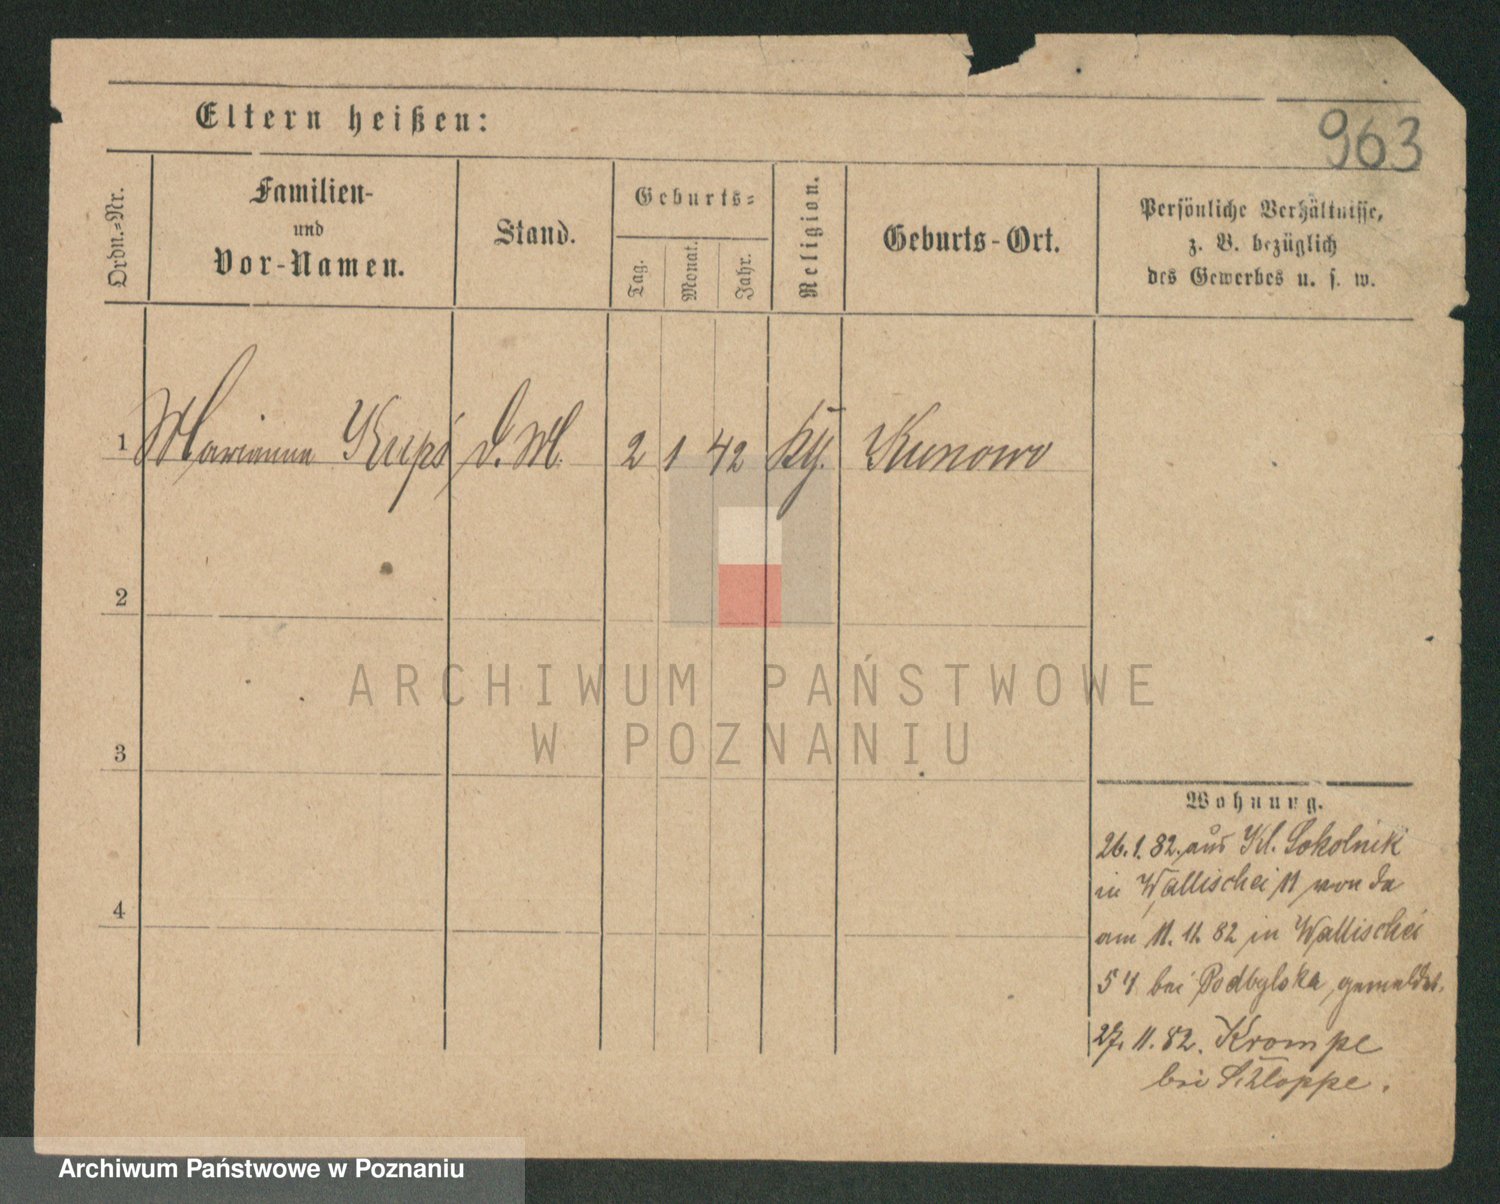 Eltern heißen:
963
Ordn.-Nr.
Familien-
und
Vor-Namen.
Stand.
Geburts-
Tag.
Monat.
Jahr.
Religion.
Geburts-Ort.
Persönliche Verhältnisse,
z. B. bezüglich
des Gewerbes u. s. w.
1 Marianna D. M. 2 1 42 Kunowo
2
3
4
ARCHIWUM PAŃSTWOWE
W POZNANIU
Wohnung.
26. 1. 82. aus Kl. Sokolnik
in Wallischei 11 von da
am 11. 11. 82 in Wallischei
bei gemeldet.
27. 11. 82. Krompe
bei Schloppe.
Archiwum Państwowe w Poznaniu